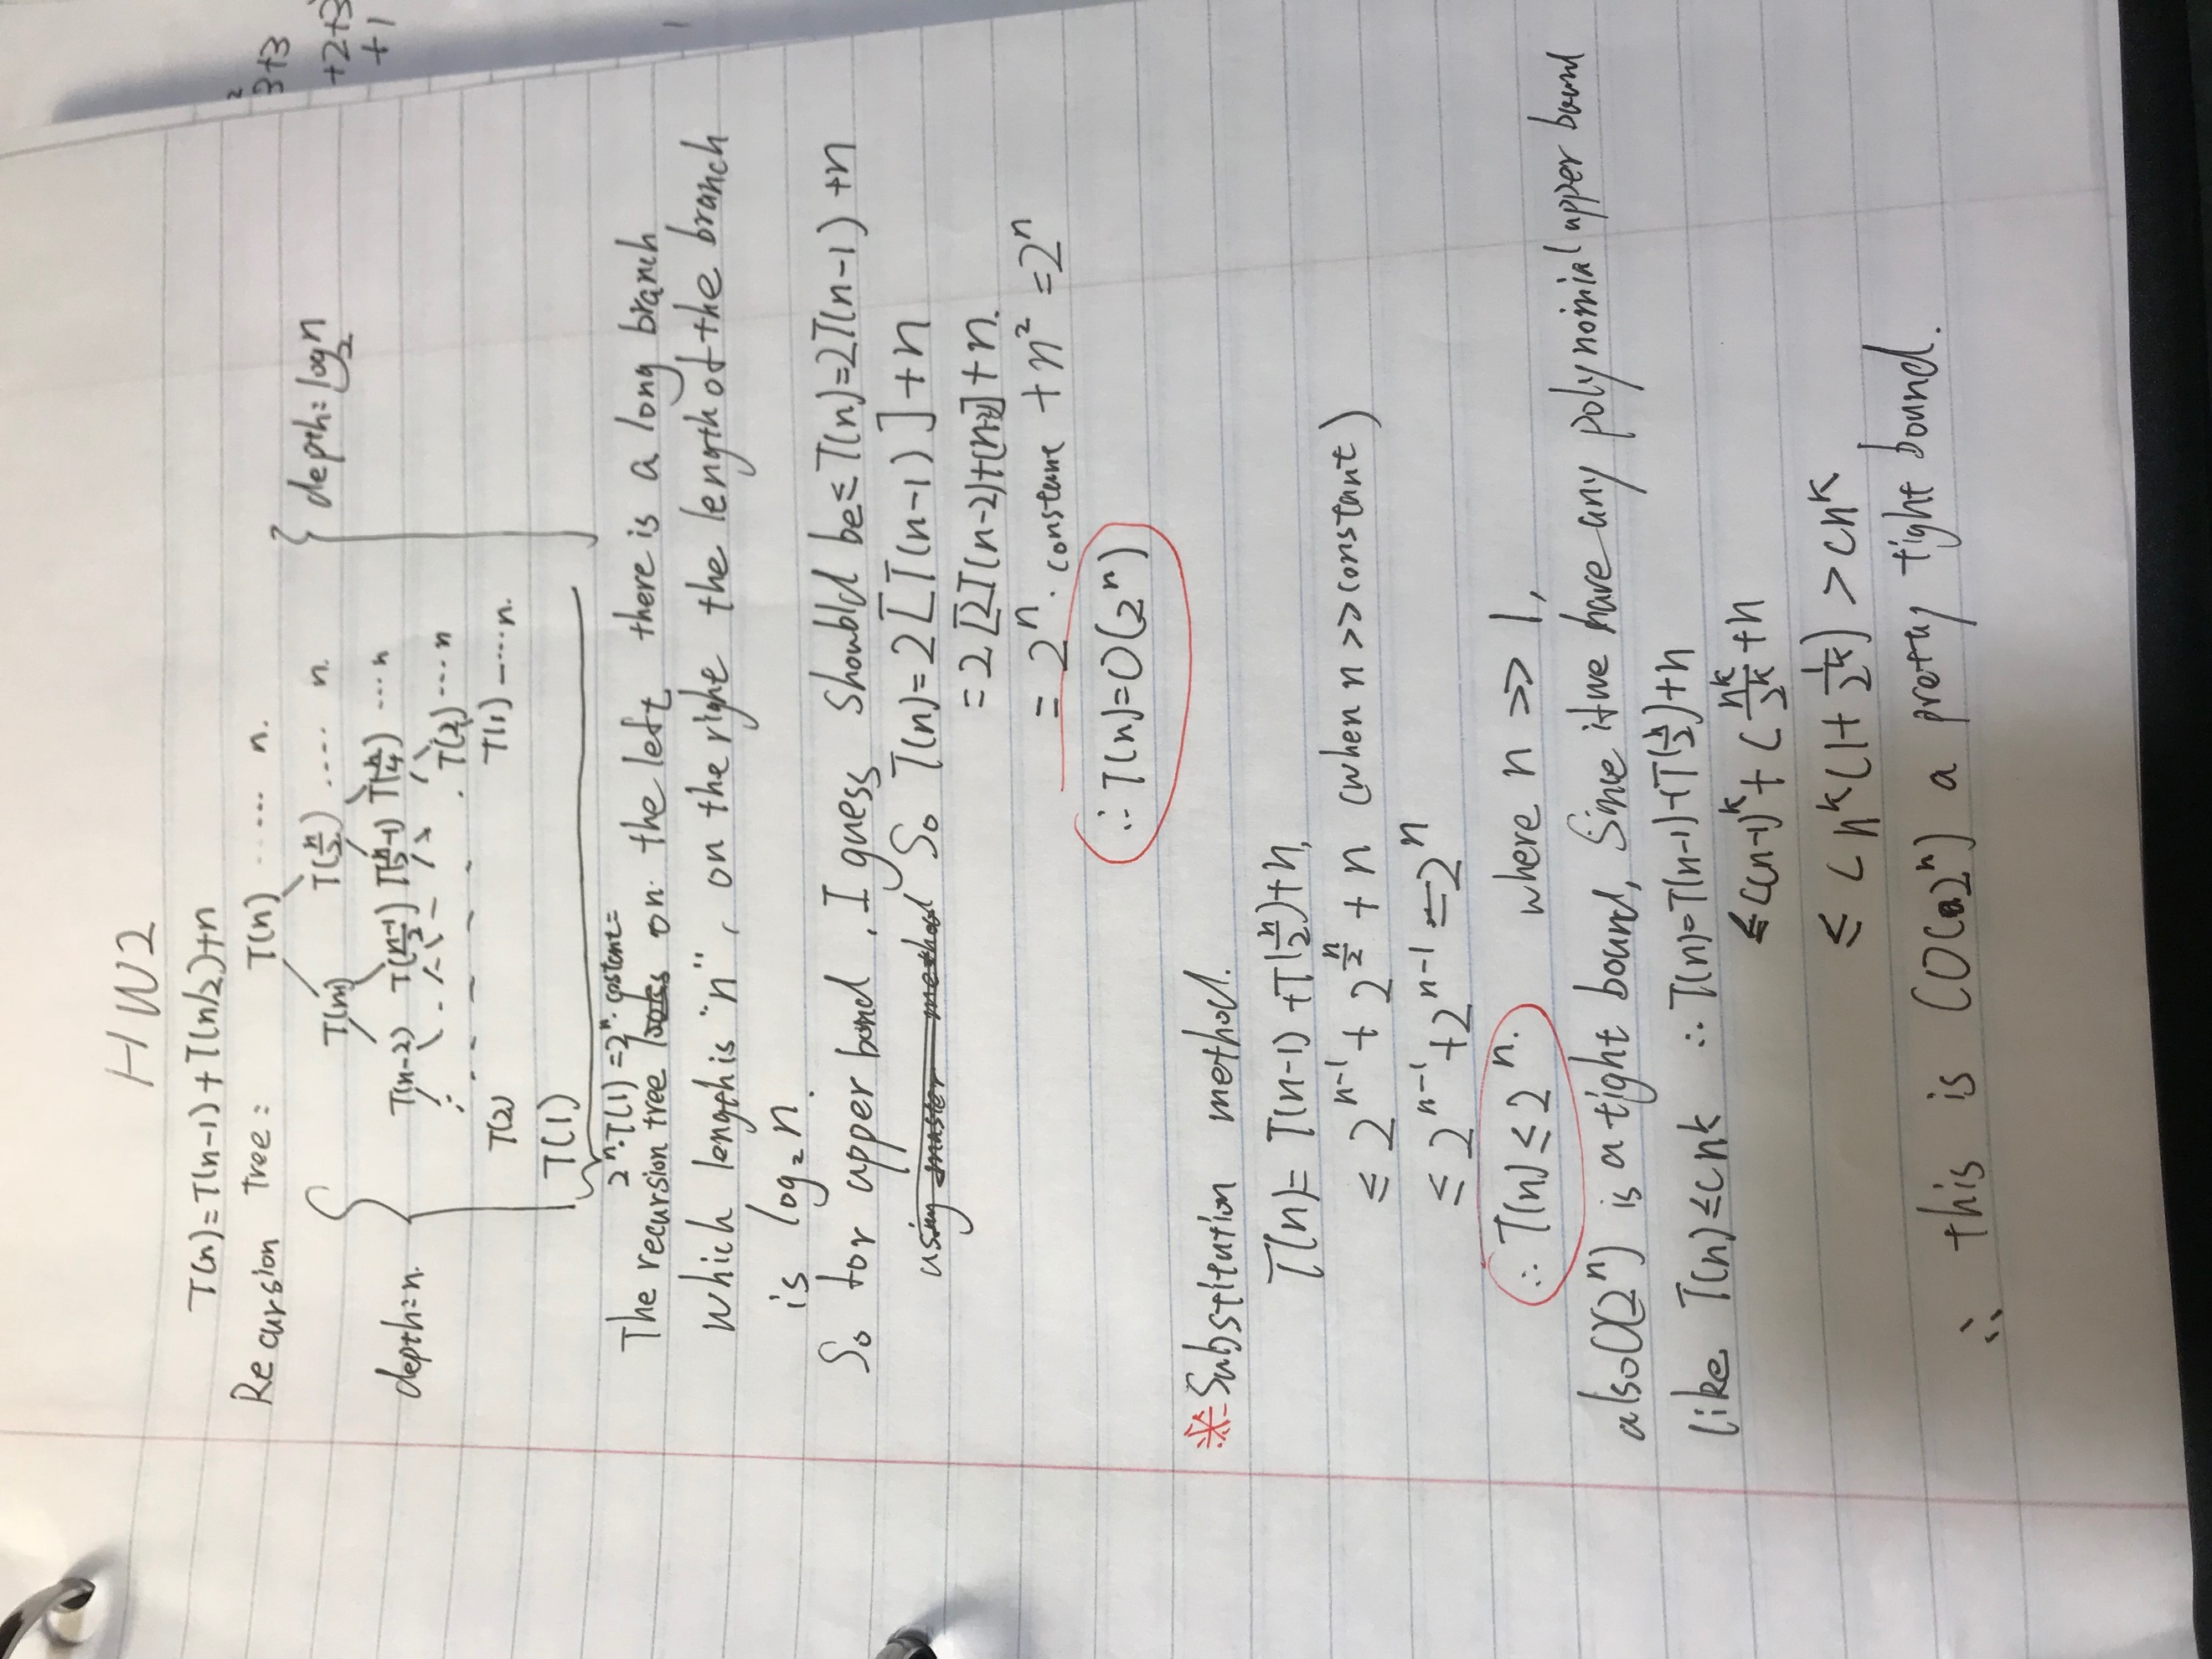 3+3
2
+2+3
+1
HW2
T(n)=T(n-1)+T(n/2)+n
Recursion Tree:
T(n) ...... n.
T(n/2) .... n.
depth=log₂n
T(n-2) T((n-1)/2) T(n/2-1) T(n/4) .... n
depth=n.
T(2) T(2) .... n
T(1) T(1) ..... n.
2ⁿ·T(1)=2ⁿ·costant=
The recursion tree on. the left there is a long branch
which lengthis "n", on the right the length of the branch
is log₂n.
So for upper bond, I guess shoubld be≤T(n)=2T(n-1)+n
using master method So T(n)=2[T(n-1)]+n
=2[2T(n-2)+(n-1)]+n.
=2ⁿ·constane+n²=2ⁿ
∴T(n)=O(2ⁿ)
※Substitution method.
T(n)=T(n-1)+T(n/2)+n,
≤2ⁿ⁻¹+2^(n/2)+n (when n>>constant)
≤2ⁿ⁻¹+2ⁿ⁻¹=2ⁿ
∴T(n)≤2ⁿ. where n>>1,
also O(2ⁿ) is a tight bound, Since if we have any polynomial upper bound
like T(n)≤cnk ∴T(n)=T(n-1)+T(n/2)+n
≤c(n-1)ᵏ+c nᵏ/2ᵏ+n
≤cnᵏ(1+1/2ᵏ)>cnᵏ
∴ this is (O(2ⁿ) a pretty tight bound.